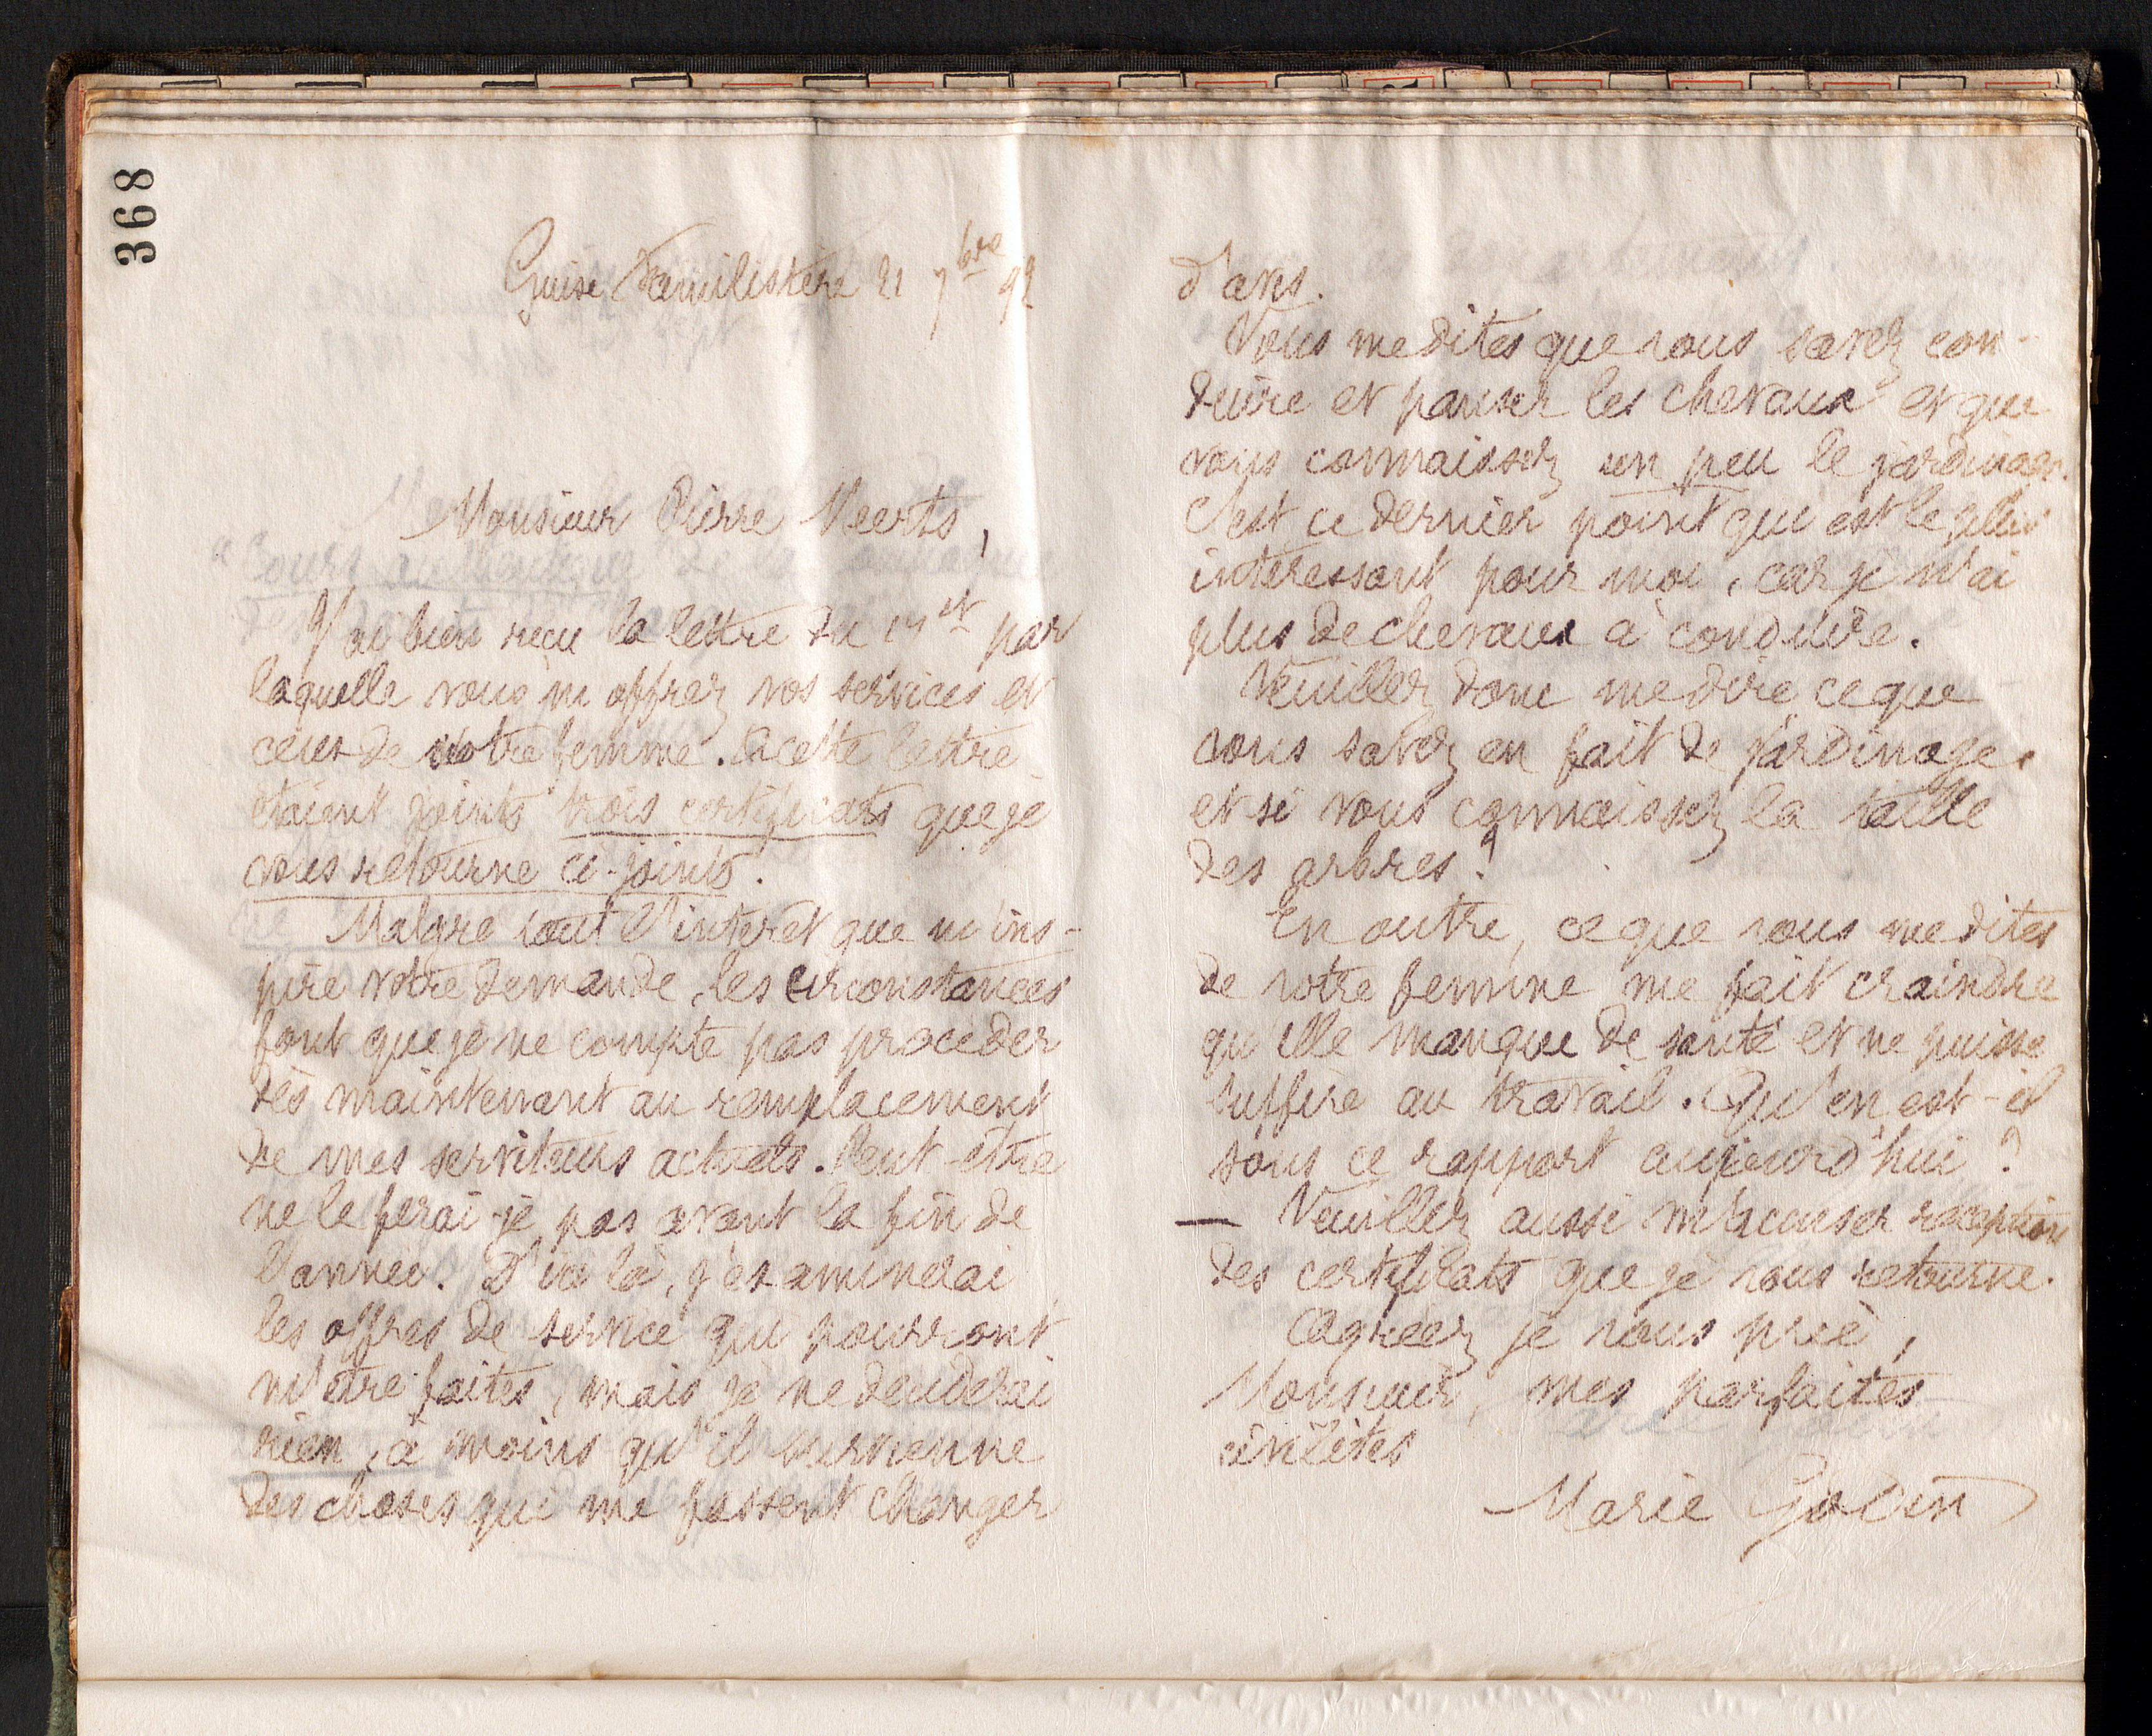 368
Guise Familistère 21 7bre 92
Monsieur Pierre Meerts,
J'ai bien reçu la lettre du 17 ct par
laquelle vous m'offrez vos services et
ceux de votre femme. A cette lettre
étaient joints trois certificats que je
vous retourne ci-joints.
Malgré tout l'intérêt que m'ins-
pire votre demande, les circonstances
font que je ne compte pas procéder
dès maintenant au remplacement
de mes serviteurs actuels. Peut-être
ne le ferai-je pas avant la fin de
l'année. D'ici là, j'examinerai
les offres de service qui pourront
m'être faites, mais je ne déciderai
rien, à moins qu'il survienne
des choses qui me fassent changer
d'avis.
Vous me dites que vous savez con-
duire et panser les chevaux et que
vous connaissez un peu le jardinage.
C'est ce dernier point qui est le plus
intéressant pour moi, car je n'ai
plus de chevaux à conduire.
Veuillez donc me dire ce que
vous savez en fait de jardinage,
et si vous connaissez la taille
des arbres?
En outre, ce que vous me dites
de votre femme me fait craindre
qu'elle manque de santé et ne puisse
suffire au travail. Qu'en est-il
sous ce rapport aujourd'hui?
— Veuillez aussi m'accuser réception
des certificats que je vous retourne.
Agréez je vous prie,
Monsieur, mes parfaites
civilités
Marie Godin